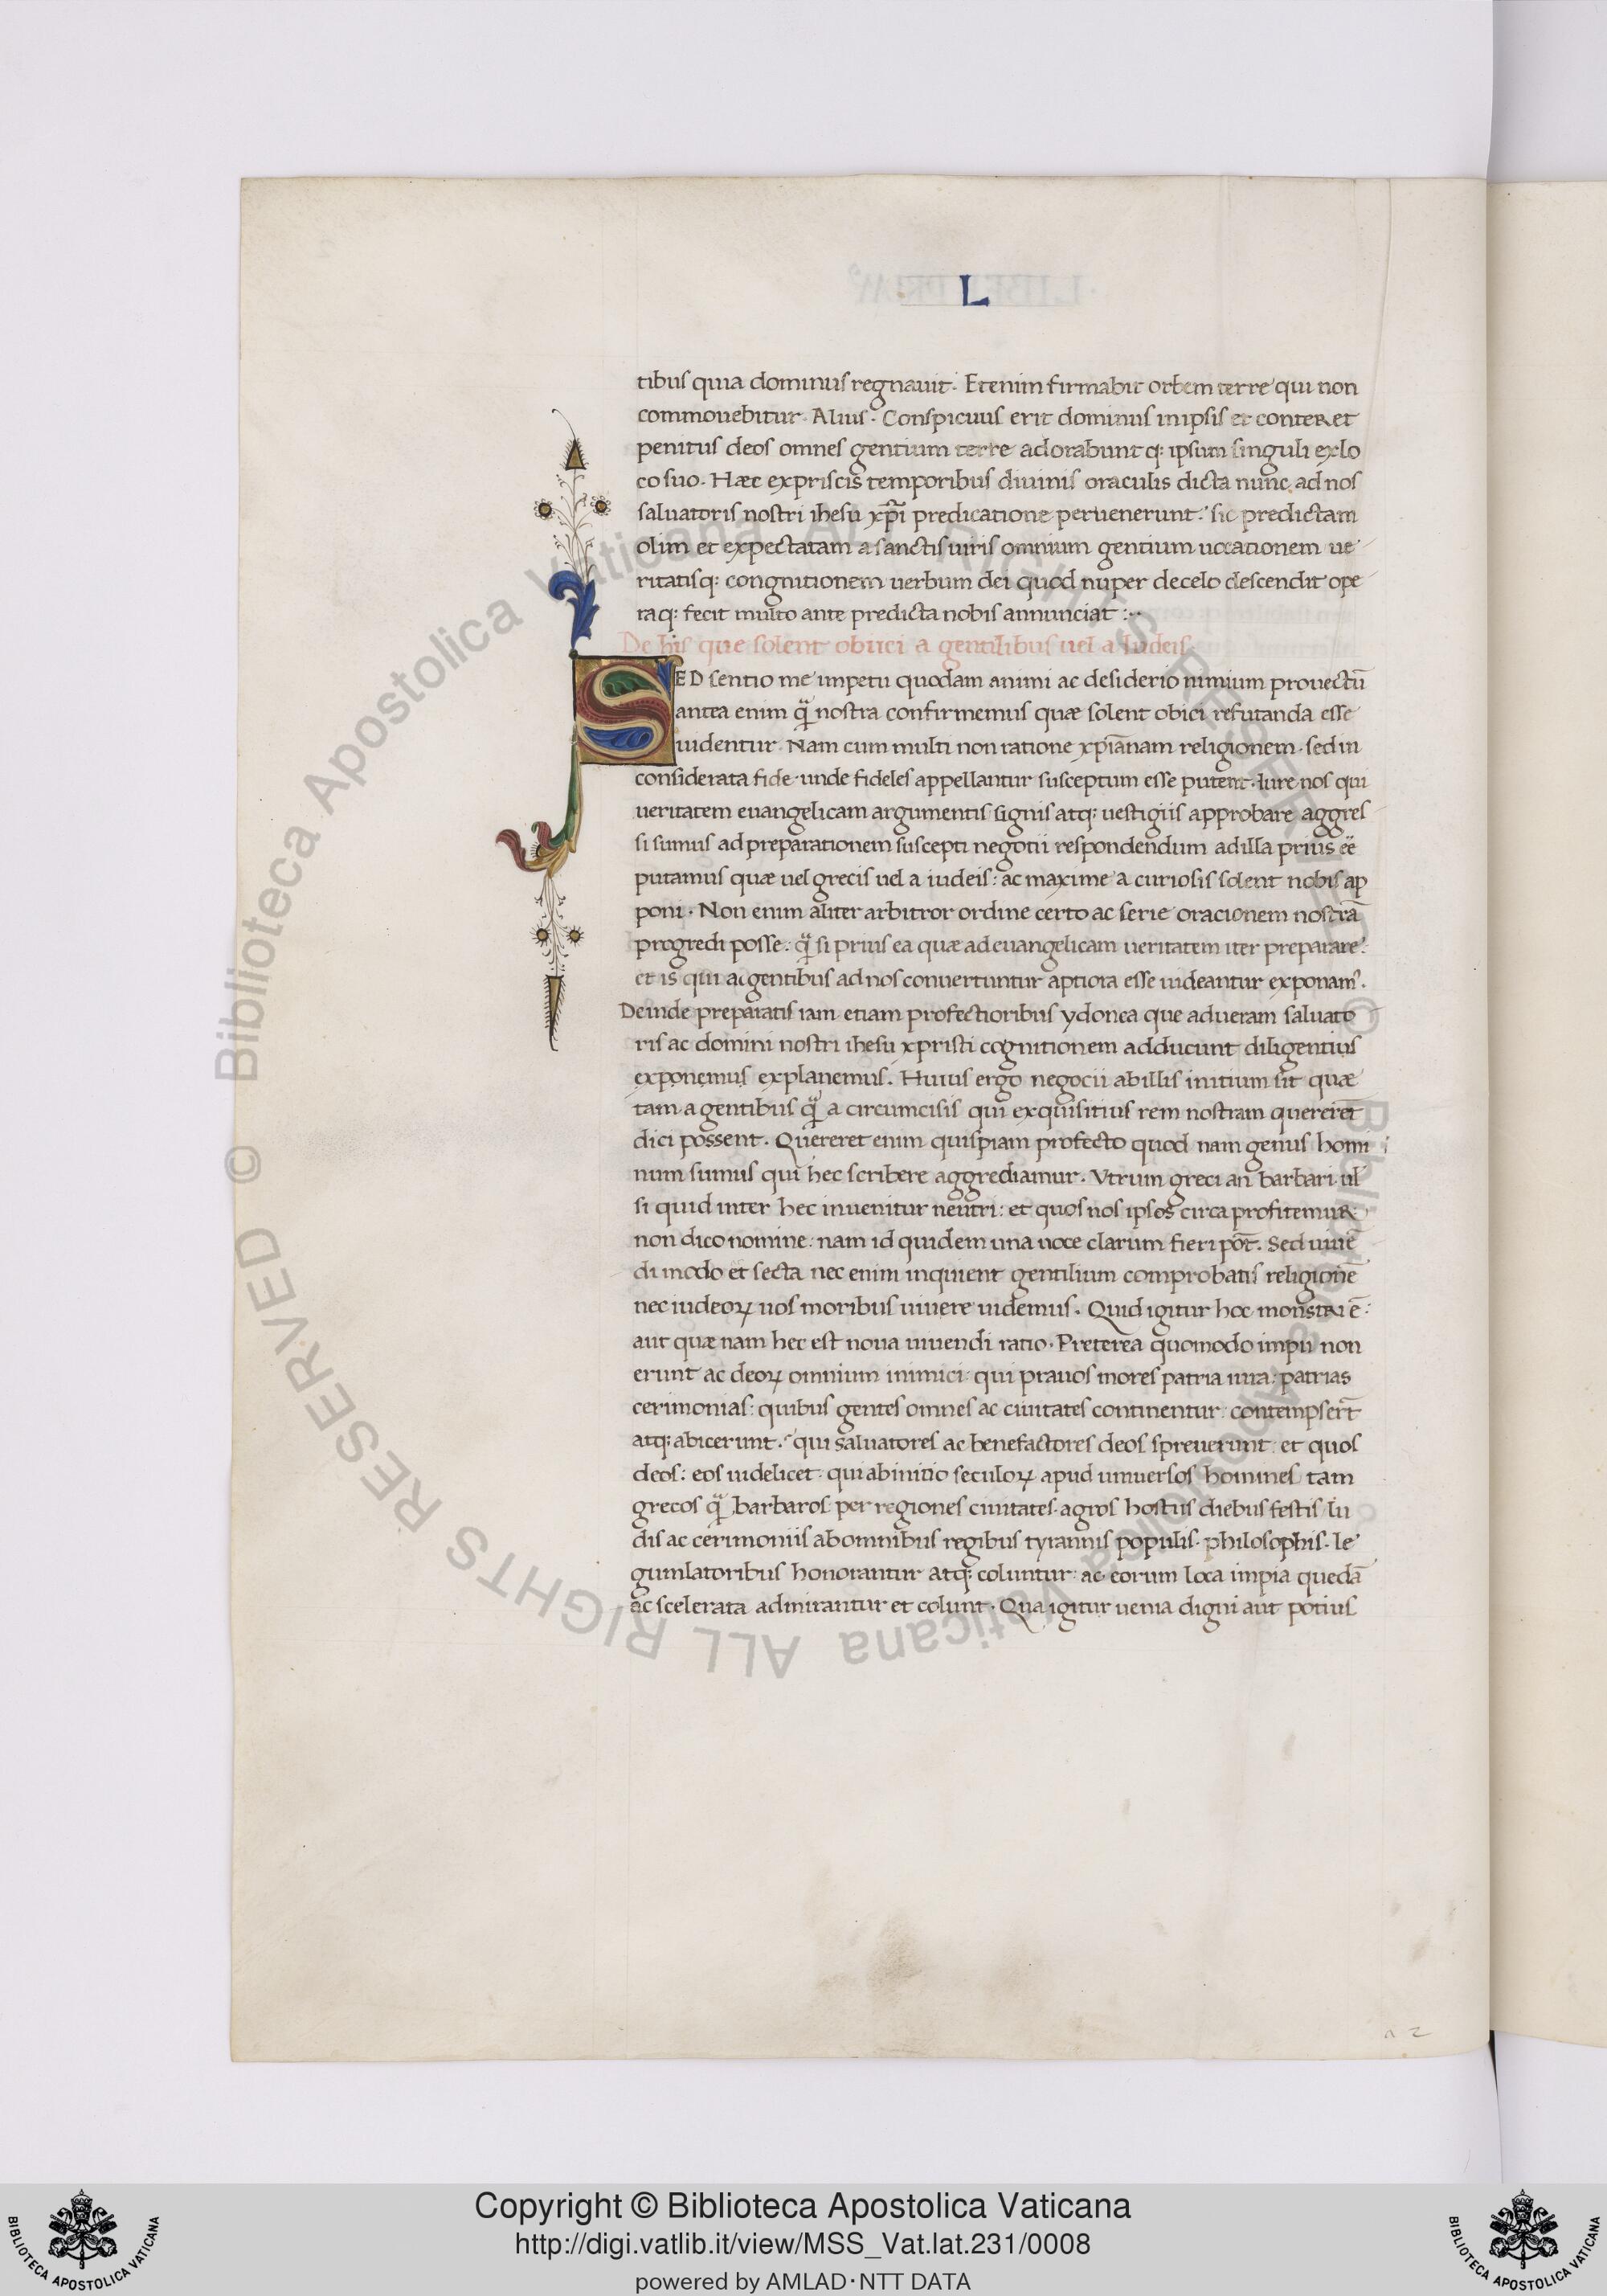 L
tibus quia dominus regnauit. Etenim firmabit orbem terre qui non
commouebitur. Alius. Conspicuus erit dominus in ipsis et conteret
penitus deos omnes gentium terre adorabuntq; ipsum singuli ex lo
co suo. Hæc expriscis temporibus diuinis oraculis dicta nunc ad nos
saluatoris nostri ihesu xp̄i predicatione peruenerunt. sic predictam
olim et expectatam a sanctis uiris omnium gentium uocationem ue
ritatisq; congnitionem uerbum dei quod nuper de celo descendit ope
raq; fecit multo ante predicta nobis annunciat :··
De his que solent obiici a gentilibus uel a Iudeis.
SED sentio me impetu quodam animi ac desiderio nimium prouectū
antea enim q̄ nostra confirmemus quæ solent obici refutanda esse
uidentur. Nam cum multi non ratione xp̄ianam religionem. sed in
considerata fide. unde fideles appellantur susceptum esse putent. Iure nos qui
ueritatem euangelicam argumentis signis atq; uestigiis approbare aggres
si sumus ad preparationem suscepti negotii respondendum ad illa prius ēē
putamus quæ uel grecis uel a iudeis: ac maxime a curiosis solent nobis ap
poni. Non enim aliter arbitror ordine certo ac serie oracionem nostrā
progredi posse: q̄ si prius ea quæ ad euangelicam ueritatem iter preparare:
et is qui a gentibus ad nos conuertuntur aptiora esse uideantur exponam⁹.
Deinde preparatis iam etiam profectioribus ydonea que ad ueram saluato
ris ac domini nostri ihesu xpristi cognitionem adducunt diligentius
exponemus explanemus. Huius ergo negocii ab illis initium sit quæ
tam a gentibus q̄ a circumcisis qui exquisitius rem nostram quererēt
dici possent. Quereret enim quispiam profecto quod nam genus homi
num sumus qui hec scribere aggrediamur. Vtrum greci an barbari ul̄
si quid inter hec inuenitur neutri: et quos nos ipsos circa profitemur
non dico nomine: nam id quidem una uoce clarum fieri pōt. Sed uiuē
di modo et secta nec enim inquient gentilium comprobatis religionē
nec iudeoꝝ uos moribus uiuere uidemus. Quid igitur hoc monstri ē:
aut quæ nam hec est noua uiuendi ratio. Preterea quomodo impii non
erunt ac deoꝝ omnium inimici: qui prauos mores patria iura: patrias
cerimonias: quibus gentes omnes ac ciuitates continentur: contempserт̄
atq; abicerunt. qui saluatores ac benefactores deos spreuerunt: et quos
deos: eos uidelicet. qui ab initio seculoꝝ apud uniuersos homines tam
grecos q̄ barbaros per regiones ciuitates. agros hostiis diebus festis lu
dis ac cerimoniis ab omnibus regibus tyrannis populis. philosophis. le
gumlatoribus honorantur atq; coluntur: ac eorum loca impia quedā
ac scelerata admirantur et colunt. Qua igitur uenia digni aut potius
© Biblioteca Apostolica Vaticana ALL RIGHTS RESERVED
© Biblioteca Apostolica Vaticana ALL RIGHTS RESERVED
Copyright © Biblioteca Apostolica Vaticana
http://digi.vatlib.it/view/MSS_Vat.lat.231/0008
powered by AMLAD·NTT DATA
BIBLIOTECA APOSTOLICA VATICANA
BIBLIOTECA APOSTOLICA VATICANA